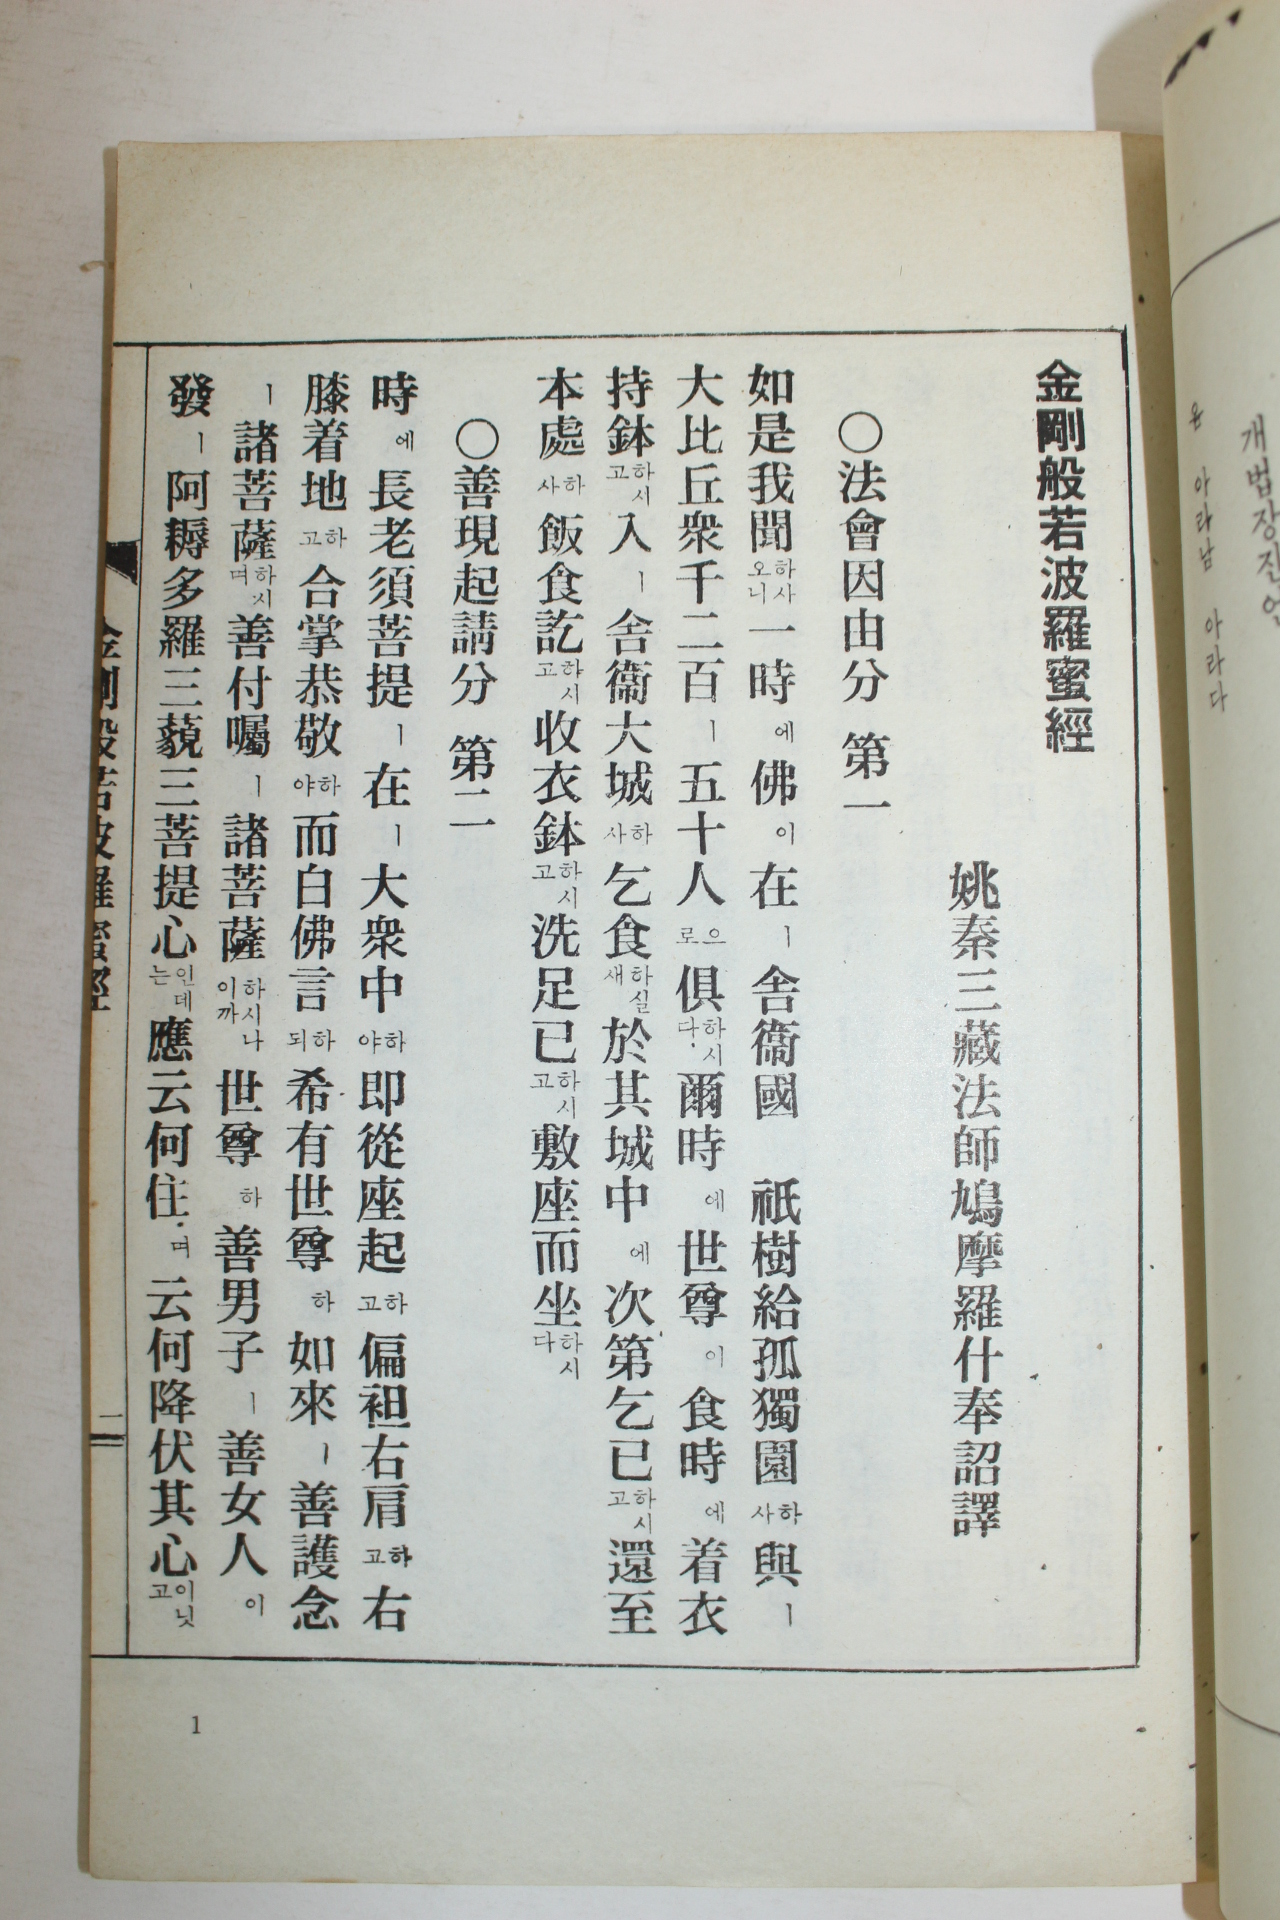 개법장진언
옴 아라남 아라다
金剛般若波羅蜜經
姚秦三藏法師鳩摩羅什奉詔譯
○法會因由分 第一
如是我聞하사오니一時에佛이在ㅣ舍衞國 祇樹給孤獨園하사與ㅣ
大比丘衆千二百ㅣ五十人으로俱하시다.爾時에世尊이食時에着衣
持鉢하시고入ㅣ舍衞大城하사乞食하실새於其城中에次第乞已하시고還至
本處하사飯食訖하시고收衣鉢하시고洗足已하시고敷座而坐하시다
○善現起請分 第二
時에長老須菩提ㅣ在ㅣ大衆中하야即從座起하고偏袒右肩하고右
膝着地하고合掌恭敬하야而白佛言하되希有世尊하如來ㅣ善護念
ㅣ諸菩薩하시며.善付囑ㅣ諸菩薩하시나이까世尊하善男子ㅣ善女人이
發ㅣ阿耨多羅三藐三菩提心인데는應云何住.며云何降伏其心이닛고
金剛般若波羅蜜經
二
1